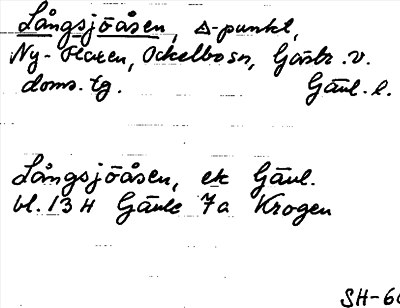 Långsjöåsen, △-punkt,
Ny-Hären, Ockelbo sn, Gästr. v.
doms. tg. Gävl. l.
Långsjöåsen, ek Gävl.
bl. 13 H Gävle 7a Krogen
SH-66